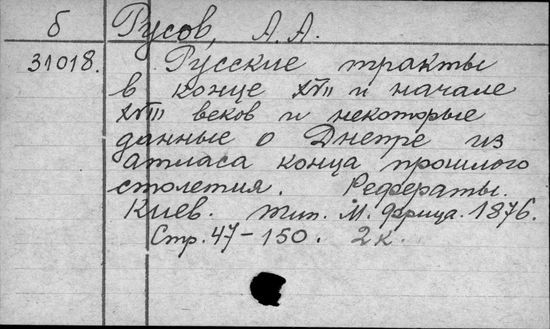 б Русов, А. А.
31018. Русские тракты
в конце XVII и начале
XVIII веков и некоторые
данные о Днепре из
атласа конца прошлого
столетия. Рефераты.
Киев. тип. М. Фрица. 1876.
Стр. 47-150. 2 к.